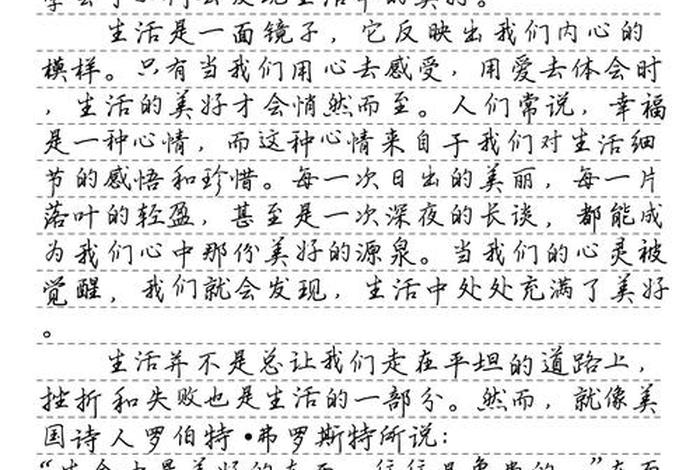 生活是一面镜子，它反映出我们内心的
模样。只有当我们用心去感受，用爱去体会时
，生活的美好才会悄然而至。人们常说，幸福
是一种心情，而这种心情来自于我们对生活细
节的感悟和珍惜。每一次日出的美丽，每一片
落叶的轻盈，甚至是一次深夜的长谈，都能成
为我们心中那份美好的源泉。当我们的心灵被
觉醒，我们就会发现，生活中处处充满了美好
。
生活并不是总让我们走在平坦的道路上，
挫折和失败也是生活的一部分。然而，就像美
国诗人罗伯特•弗罗斯特所说：